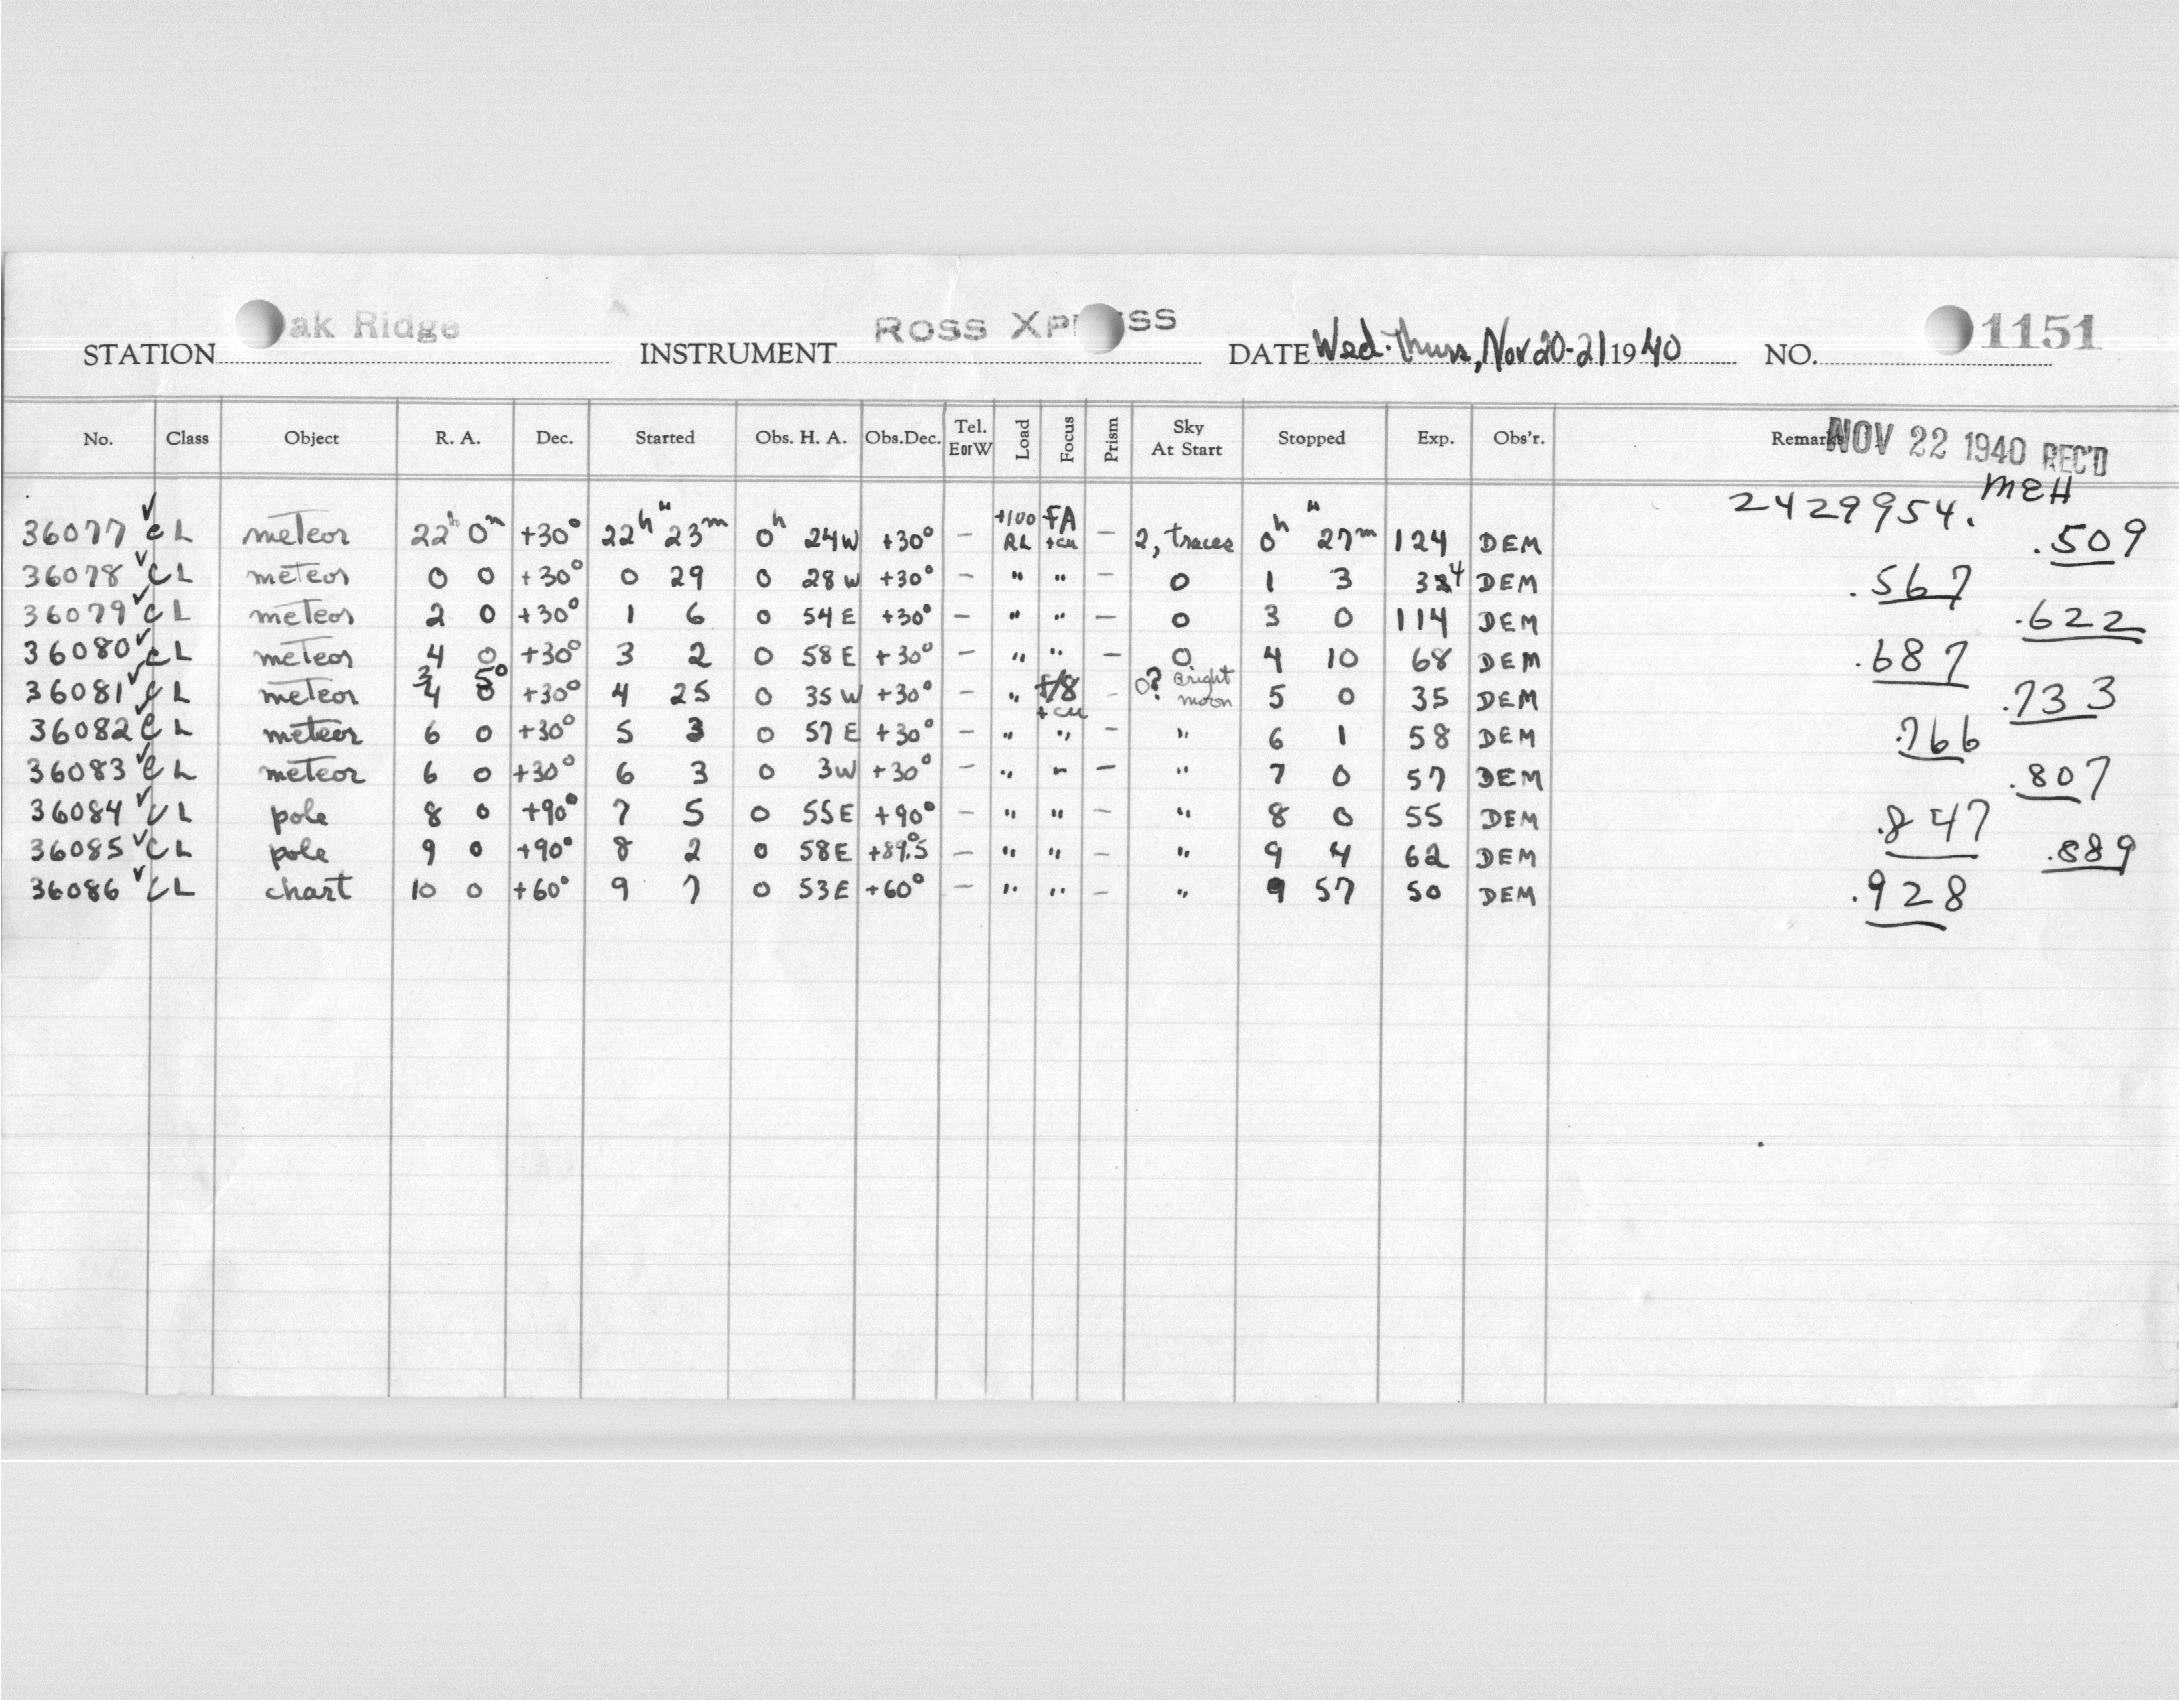 ak Ridge ROSS XP SS 1151
STATION INSTRUMENT DATE Wed.-Thurs, Nov 20-21 1940 NO.
No. Class Object R. A. Dec. Started Obs. H. A. Obs.Dec. Tel. EorW Load Focus Prism Sky At Start Stopped Exp. Obs'r. Remarks NOV 22 1940 REC'D
2429954. MEH
36077 ✓ CL meteor 22h 0m +30° 22h 23m 0h 24W +30° - +100 RL FA +cu - 2, traces 0h 27m 124 DEM .509
36078 ✓ CL meteor 0 0 +30° 0 29 0 28W +30° - " " - 0 1 3 34 DEM .567
36079 ✓ CL meteor 2 0 +30° 1 6 0 54E +30° - " " - 0 3 0 114 DEM .622
36080 ✓ CL meteor 4 0 +30° 3 2 0 58E +30° - " " - 0 4 10 68 DEM .687
36081 ✓ CL meteor 3 50 4 0 +30° 4 25 0 35W +30° - " F/8 +cu - 0? Bright moon 5 0 35 DEM .733
36082 ✓ CL meteor 6 0 +30° 5 3 0 57E +30° - " " - " 6 1 58 DEM .766
36083 ✓ CL meteor 6 0 +30° 6 3 0 3W +30° - " " - " 7 0 57 DEM .807
36084 ✓ CL pole 8 0 +90° 7 5 0 55E +90° - " " - " 8 0 55 DEM .847
36085 ✓ CL pole 9 0 +90° 8 2 0 58E +89.°5 - " " - " 9 4 62 DEM .889
36086 ✓ CL chart 10 0 +60° 9 7 0 53E +60° - " " - " 9 57 50 DEM .928